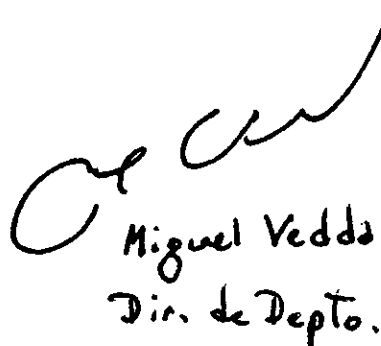 Miguel Vedda
Dir. de Depto.